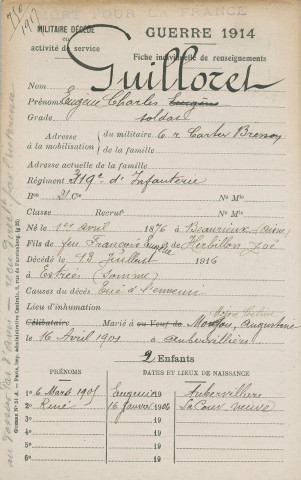 MORT POUR LA FRANCE
MILITAIRE DÉCÉDÉ
en
activité de service
GUERRE 1914
Fiche individuelle de renseignements
Guilloret
Nom
Prénoms Eugène Charles Eugène
Grade soldat
Adresse à la mobilisation
de militaire 6 r Carter Bresson
de la famille
Adresse actuelle de la famille
Régiment 319e d'Infanterie
Bon 21 Cie N° Mle
Classe Recrut N° Mle
Né le 1er avril 1876 à Beaurieux (Aisne)
Fils de feu François Eugène et de Herbillon Zoé
Décédé le 13 Juillet 1916
à Estrées (Somme)
Causes du décès Tué à l'ennemi
Lieu d'inhumation
Célibataire Marié à ou Veuf de Augustine
le 16 Avril 1901 à Aubervilliers
2 Enfants
PRÉNOMS DATES ET LIEUX DE NAISSANCE
1° 6 Mars 1901 Eugénie Aubervilliers
2° René 16 Janvier 1906 La Courneuve
3° 19
4° 19
5° 19
6° 19
7° 19
8° 19